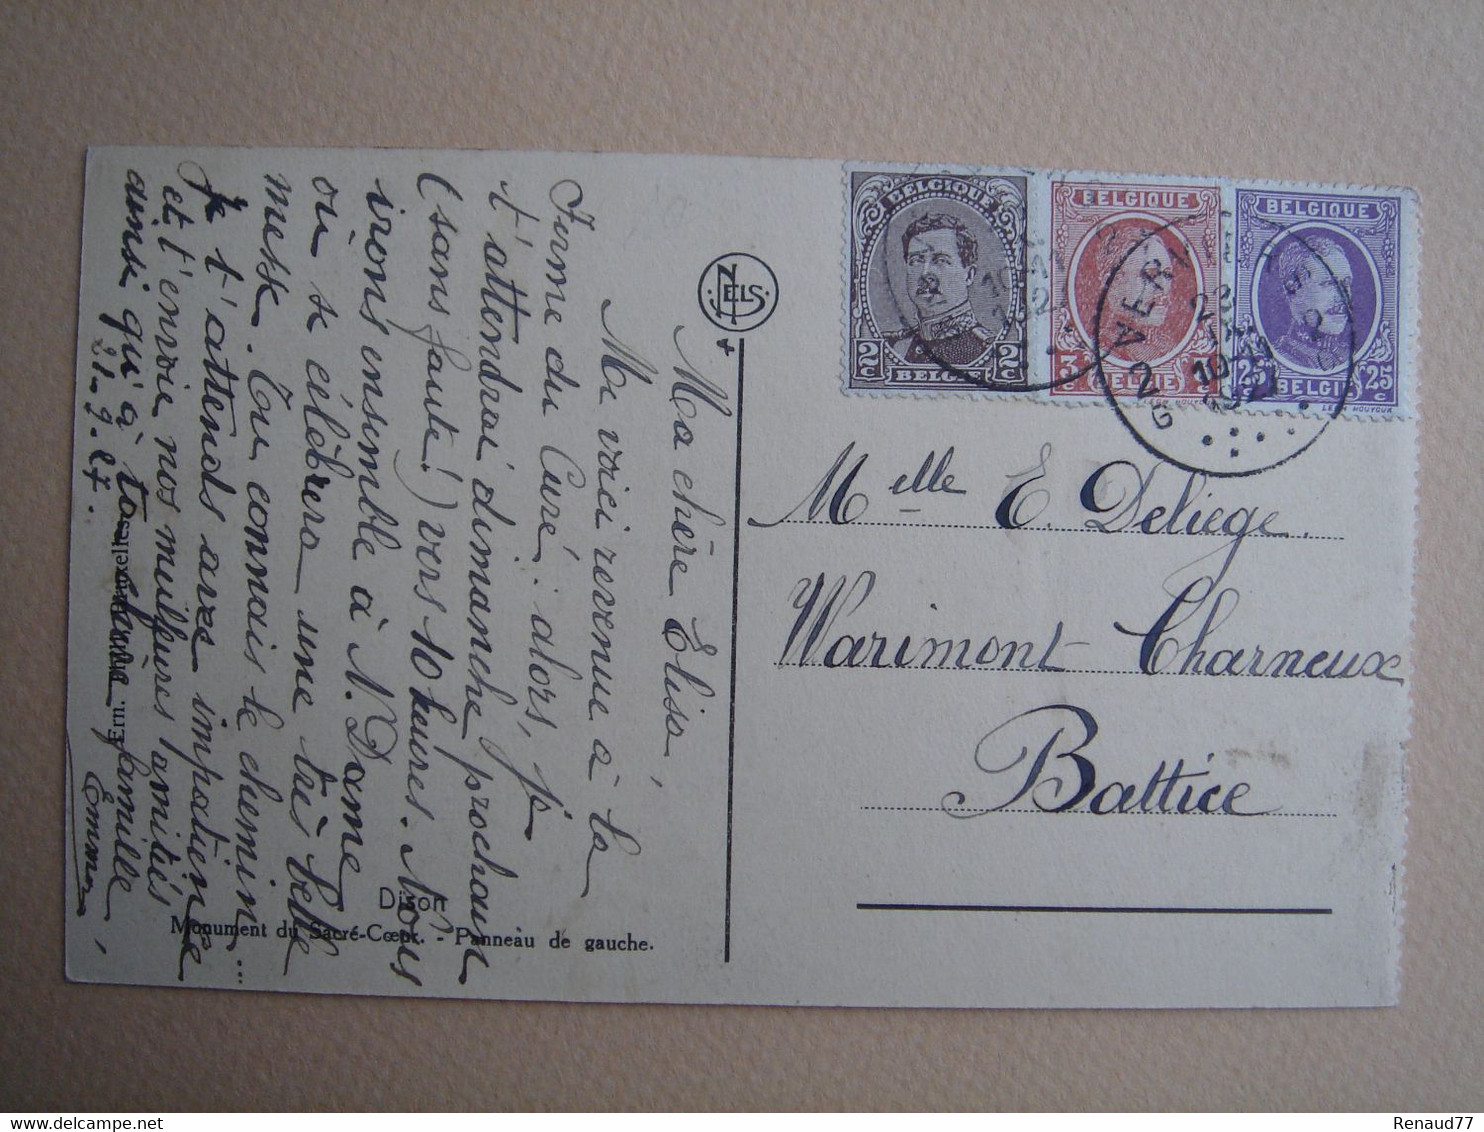 Ma chère Elisa,
Me voici revenue à la
Ferme du Curé: alors, je
t'attendrai dimanche prochain
(sans faute!) vers 10 heures. Nous
irons ensemble à N. Dame
où se célèbrera une très belle
messe. Tu connais le chemin...
Je t'attends avec impatience
et t'envoie nos meilleures amitiés
ainsi qu'à ta chère famille
21-9-27.
Emma,
NELS
Dison
Monument du Sacré-Cœur. - Panneau de gauche.
Ern. Bruxelles
BELGIQUE
2c 2c
BELGIË
BELGIQUE
3
BELGIË
BELGIQUE
25 25c
BELGIË
VERVIERS
2G
Melle E. Deliege.
Warimont-Charneux
Battice
Renaud77